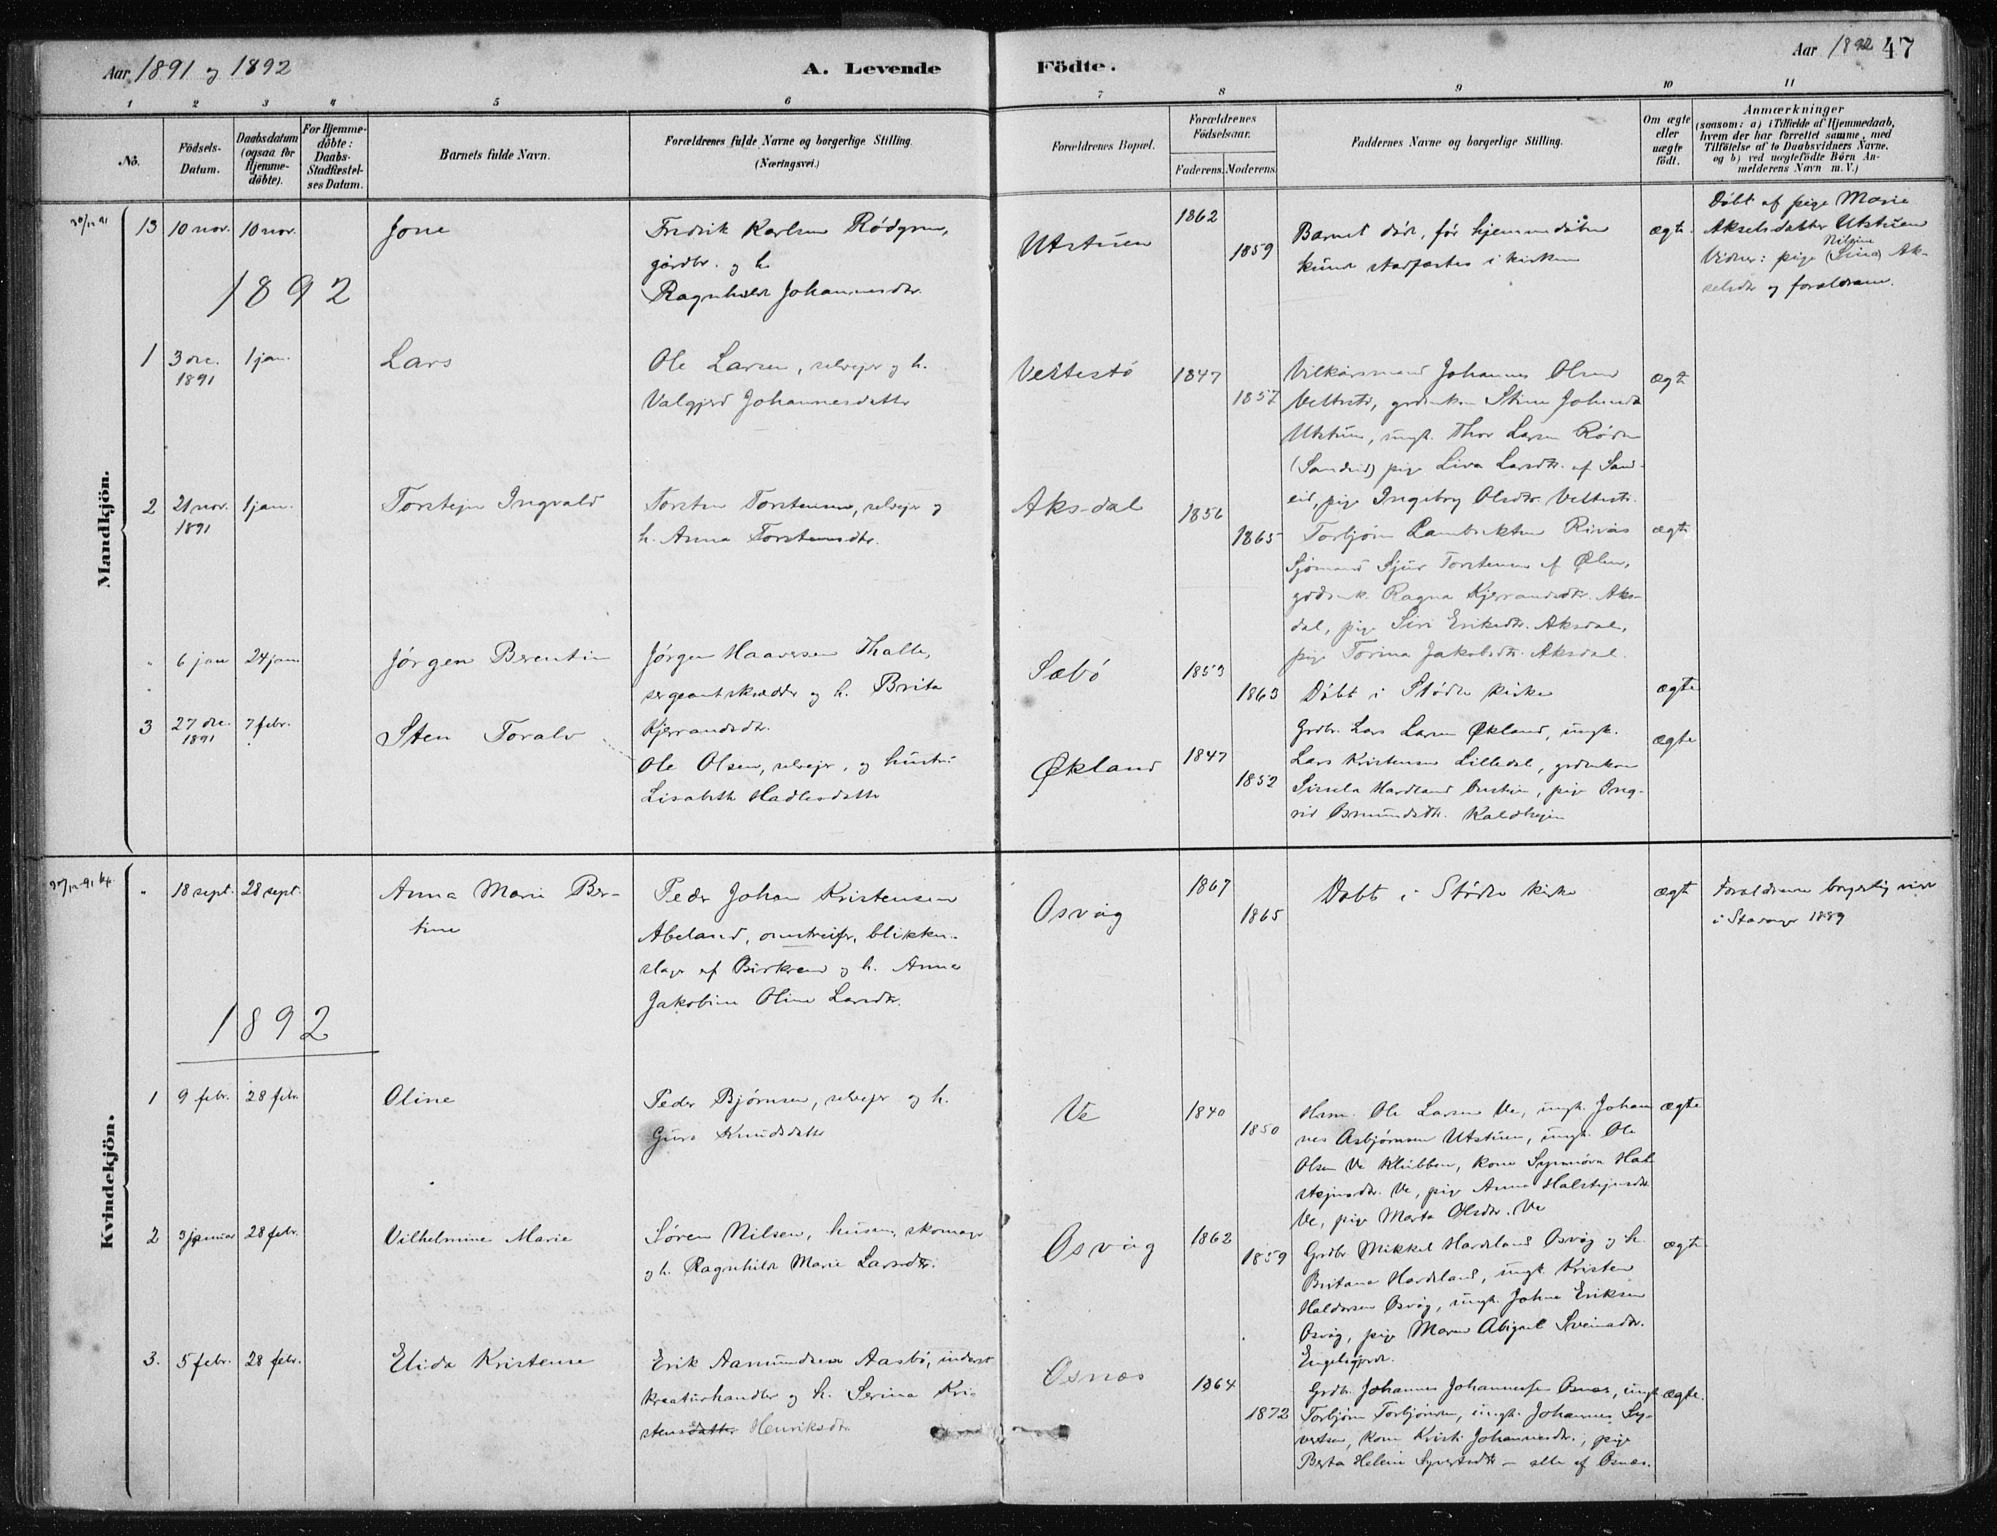 Aar 1891 og 1892
A. Levende
Födte.
Aar 1892
47
1
2
3
4
5
6
7
8
9
10
11
No.
Födsels-Datum.
Daabsdatum (ogsaa for Hjemme-döbte).
For Hjemme-döbte: Daabs-Stadfæstel-ses Datum.
Barnets fulde Navn.
Forældrenes fulde Navne og borgerlige Stilling.
(Næringsvei.)
Forældrenes Bopæl.
Forældrenes Födselsaar.
Faderens.
Moderens.
Faddernes Navne og borgerlige Stilling.
Om ægte eller uægte födt.
Anmærkninger
(saasom: a) i Tilfælde af Hjemmedaab,
hvem der har forrettet samme, med
Tilföielse af to Daabsvidners Navne.
og b) ved uægtefödte Börn An-
melderens Navn m. V.)
Mandkjön.
30/12 91
13
10 nov.
10 nov.
Jone
Fredrik Karlsen Rødgren,
gårdbr. og h.
Ragnhild Johannesdtr.
Utstuen
1862
1859
Barnet døde, før hjemmedåben
kunde stadfæstes i kirken
ægte
Døbt af pige Marie
Akselsdatter Utstuen
Vidner: pige (Sina) Ak-
Nilsine
selsdtr og forældrene.
1892
1
3 dec.
1891
1 jan.
Lars
Ole Larsen, selvejer og h.
Valgjerd Johannesdatter
Vestestø
1847
1857
Vilkårsmand Johannes Olsen
Vettestø, grdmkon Stine Johnsdtr
Utstuen, ungk. Thor Larsen Røde
(Sandeid) pige Liva Larsdtr. af Sand-
eid, pige Ingeborg Olsdtr. Vettestø.
ægte
2
21 nov.
1891
1 jan.
Torstejn Ingvald
Torsten Torstensen, selvejer og
h. Anna Torstensdtr.
Aksdal
1856
1865
Torbjørn Lambriktsen Rivås
Sjømand Sjur Torstensen af Ølen,
grdmk. Ragna Kjerrandsdtr. Aks-
dal, pige Siri Eriksdtr. Aksdal,
pige Torina Jakobsdtr. Aksdal.
ægte
"
6 jan
24 jan
Jørgen Berentin
Jørgen Haaversen Thalle,
sergeant skrædder og h. Brita
Kjerrandsdtr.
Sæbø
1853
1863
Døbt i Stødle kirke
ægte
3
27 dec.
1891
7 febr.
Sten Toralv
Ole Olsen, selvejer, og hustru
Lisabeth Hadlesdatter
Økland
1847
1852
Grdbr. Lars Larsen Økland, ungk.
Lars Kristensen Lilledal, grdmkon
Sissela Hardeland Østen, pige Ing-
rid Osmundsdtr. Kaldhejen
ægte
Kvindekjön.
30/12 91
"
18 sept.
28 sept.
Anna Marie Ber-
tine
Peder Johan Kristensen
Abeland, omstreifer, blikken-
slager af Birkrem og h. Anna
Jakobine Oline Larsdtr.
Osvåg
1867
1865
Døbt i Stødle kirke
ægte
Forældrene borgerlig viet
i Stavanger 1889
1892
1
9 febr.
28 febr.
Oline
Peder Bjørnsen, selvejer og h.
Guro Knudsdatter
Ve
1840
1850
Husm. Ole Larsen Ve, ungk. Johan-
nes Asbjørnsen Utstuen, ungk. Ole
Olsen Ve Klubben, kone Synnøva Hal-
stejnsdtr. Ve, pige Anna Halstejnsdtr
Ve, pige Marta Olsdtr. Ve
ægte
2
3 januar
28 febr.
Vilhelmine Marie
Søren Nilsen, husm., skomager
og h. Ragnhild Marie Larsdtr.
Osvåg
1862
1859
Grdbr. Mikkel Hardeland Osvåg og h.
Britana Hardeland, ungk. Kristen
Haldorsen Osvåg, ungk. Johne Eriksen
Osvåg, pige Maren Abigael Sveinsdtr.
Engelsgjerd.
ægte
3.
5 febr.
28 febr.
Elida Kristense
Erik Aamundsen Aasbø, inderst
kreaturhandler og h. Serina Kri-
stensdatter Henriksdtr.
Osnæs
1864
1872
Grdbr. Johannes Johannessen Osnæs, ungk
Torbjørn Torbjørnsen, ungk. Johannes Sy-
vertsen, kone Kristi Johannesdtr., pige
Berta Helene Syvertsdtr - alle af Osnæs.
ægte.